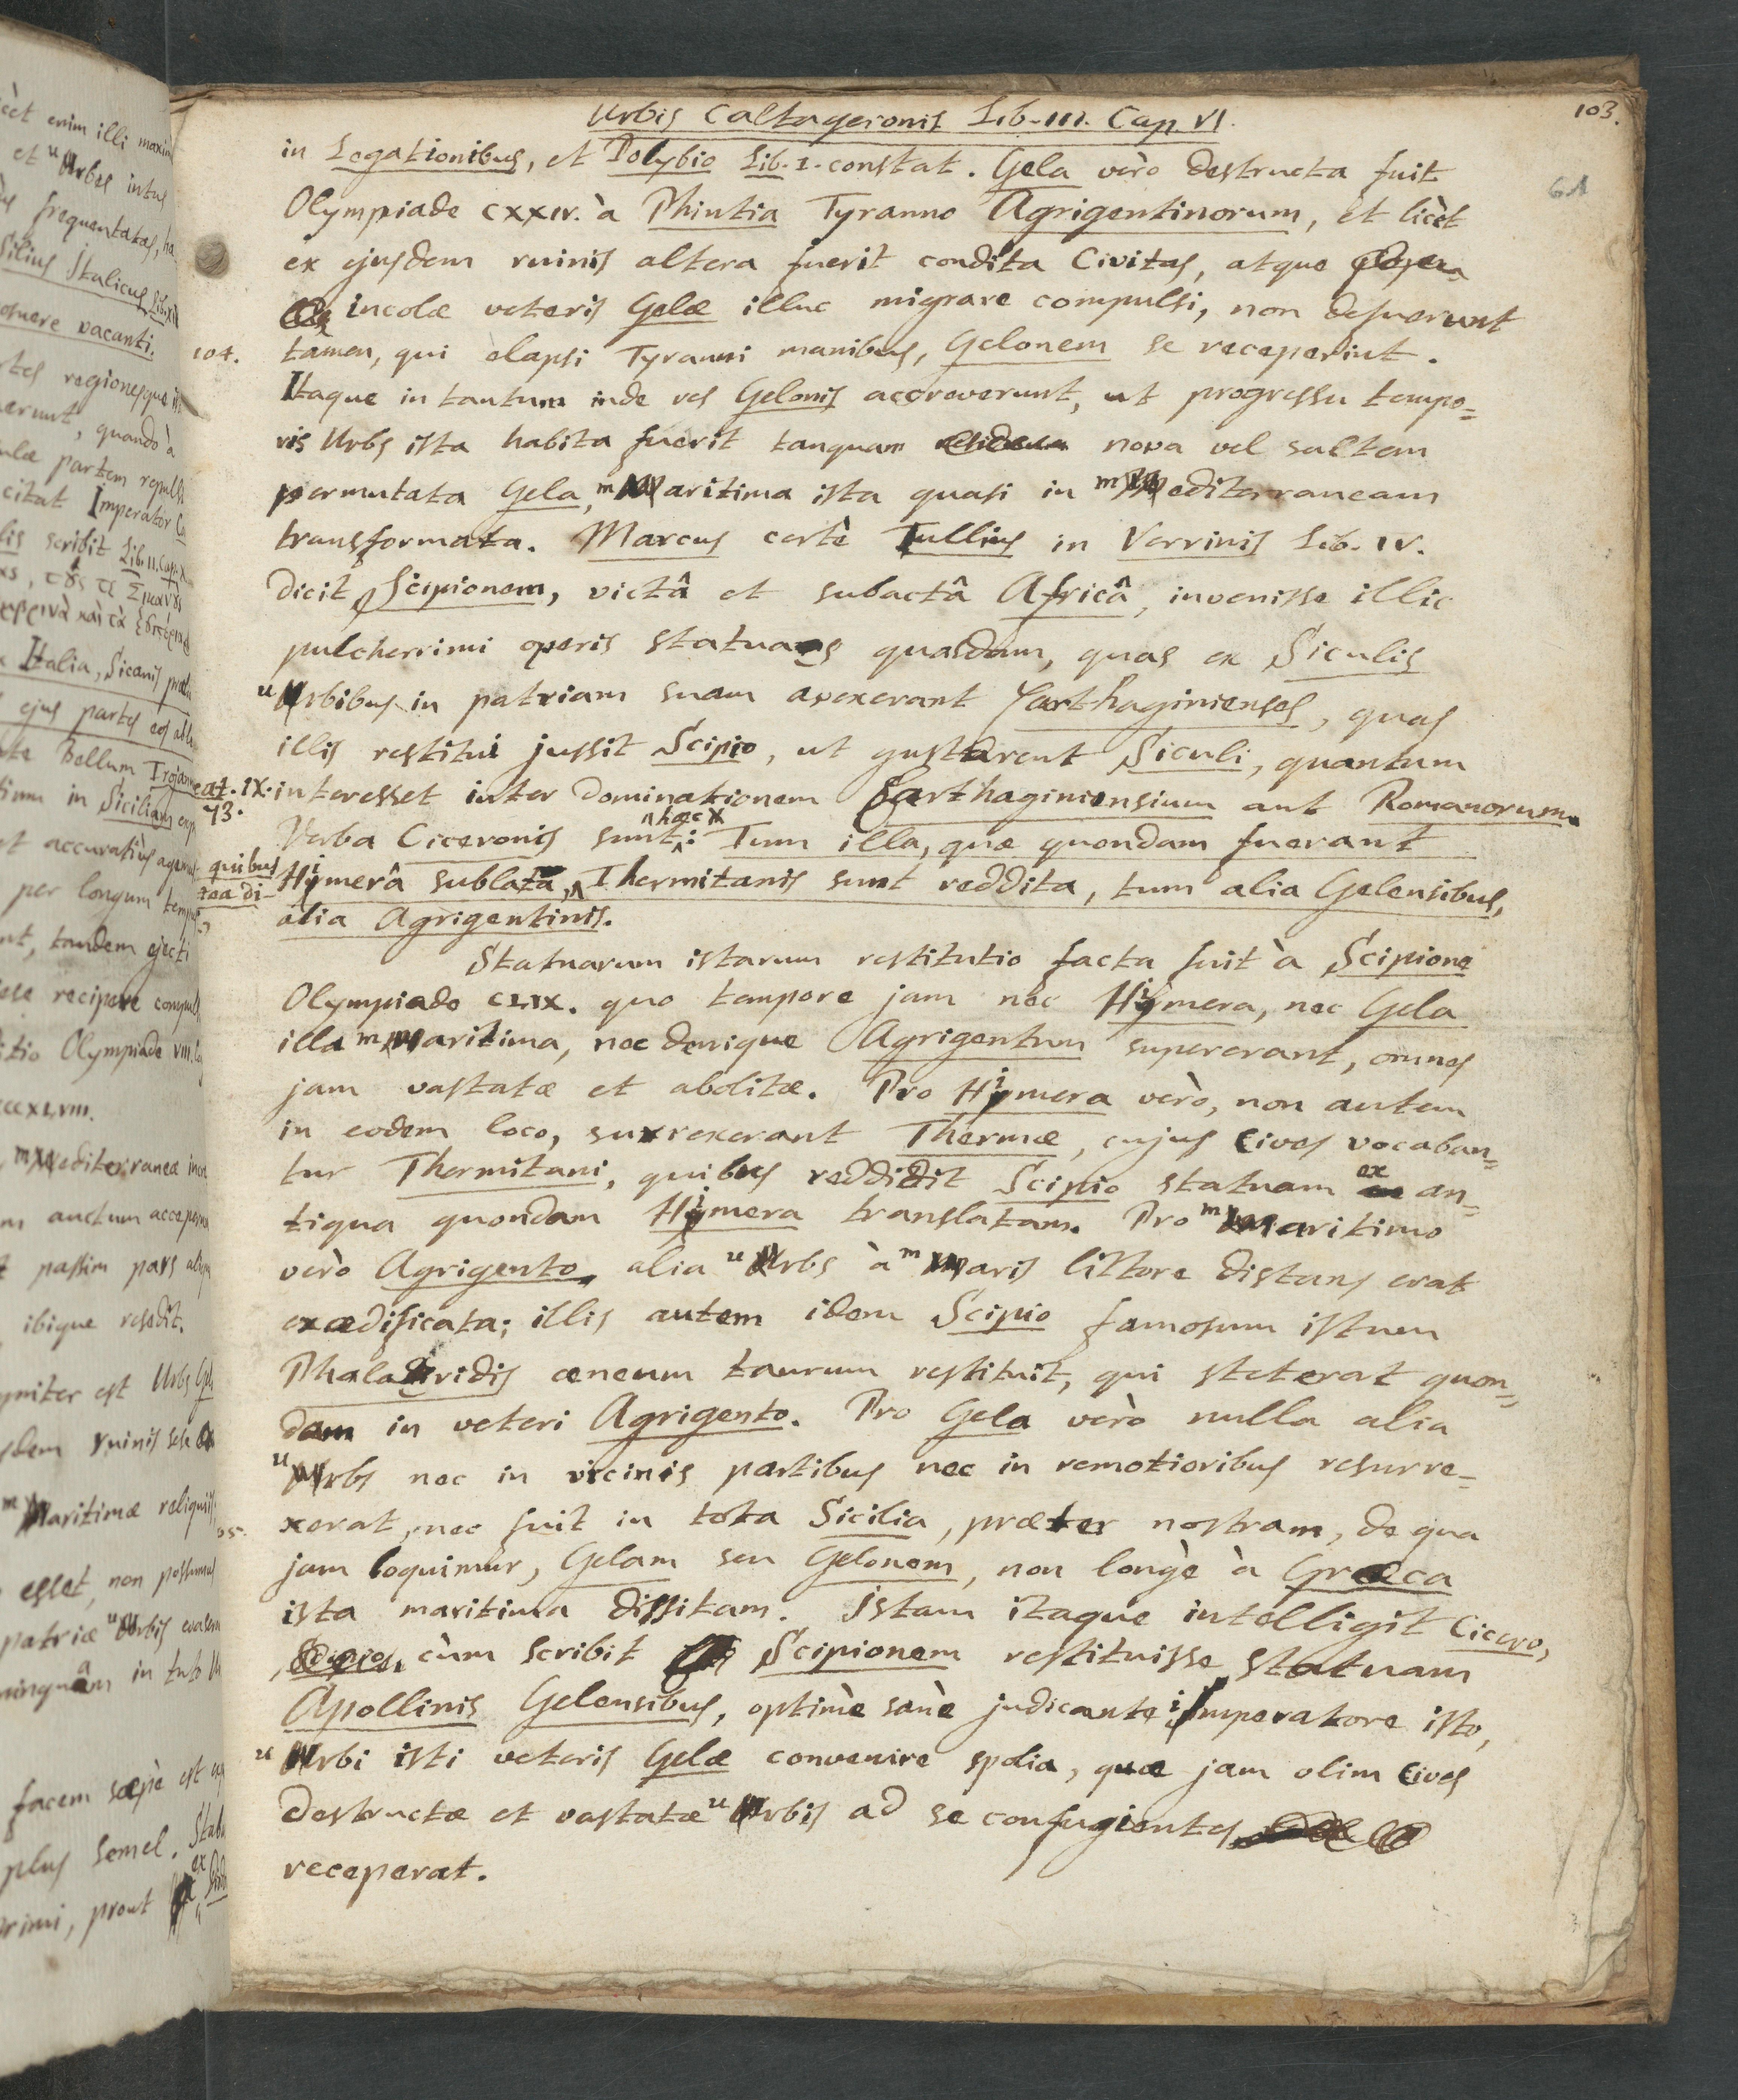 Urbis Caltageronis Lib. III. Cap. VI.
103.
61
in Legationibus, et Polybio Lib. I. constat. Gela verò destructa fuit
Olympiade CXXIV. à Phintia Tyranno Agrigentinorum, et licèt
ex ejusdem ruinis altera fuerit condita Civitas, atque
incolæ veteris Gelæ illuc migrare compulsi, non defuerunt
104. tamen, qui elapsi Tyranni manibus, Gelonem se receperint.
Itaque in tantum inde res Gelonis accreverunt, ut progressu tempo=
ris Urbs ista habita fuerit tanquam nova vel saltem
permutata Gela, maritima ista quasi in mediterraneam
transformata. Marcus certè Tullius in Verrinis Lib. IV.
dicit, Scipionem, victâ et subactâ Africâ, invenisse illic
pulcherrimi operis statuas quasdam, quas ex Siculis
urbibus in patriam suam avexerant Carthaginienses, quas
illis restitui jussit Scipio, ut gustarent Siculi, quantum
at. IX. interesset inter dominationem Carthaginiensium aut Romanorum.
73.
Verba Ciceronis sunt hæc: Tum illa, quæ quondam fuerant
quibus Himerâ sublata, Thermitanis sunt reddita, tum alia Gelensibus,
tea di-
alia Agrigentinis.
Statuarum istarum restitutio facta fuit à Scipione
Olympiade CLIX. quo tempore jam nec Himera, nec Gela
illa maritima, nec denique Agrigentum supererant, omnes
jam vastatæ et abolitæ. Pro Himera verò, non autem
in eodem loco, surrexerant Thermæ, cujus Cives vocaban=
tur Thermitani, quibus reddidit Scipio statuam ex an=
tiqua quondam Himera translatam. Pro maritimo
verò Agrigento, alia urbs à maris littore distans erat
exædificata; illis autem idem Scipio famosum istum
Phalaridis æneum taurum restituit, qui steterat quon=
dam in veteri Agrigento. Pro Gela verò nulla alia
urbs nec in vicinis partibus nec in remotioribus resurre=
05. xerat, nec fuit in tota Sicilia, præter nostram, de qua
jam loquimur, Gelam seu Gelonem, non longè à Græca
ista maritima dissitam. Istam itaque intelligit Cicero,
cùm scribit Scipionem restituisse statuam
Apollinis Gelensibus, optimè sanè judicante imperatore isto,
urbi isti veteris Gelæ convenire spolia, quæ jam olim Cives
destructæ et vastatæ urbis ad se confugientes
receperat.